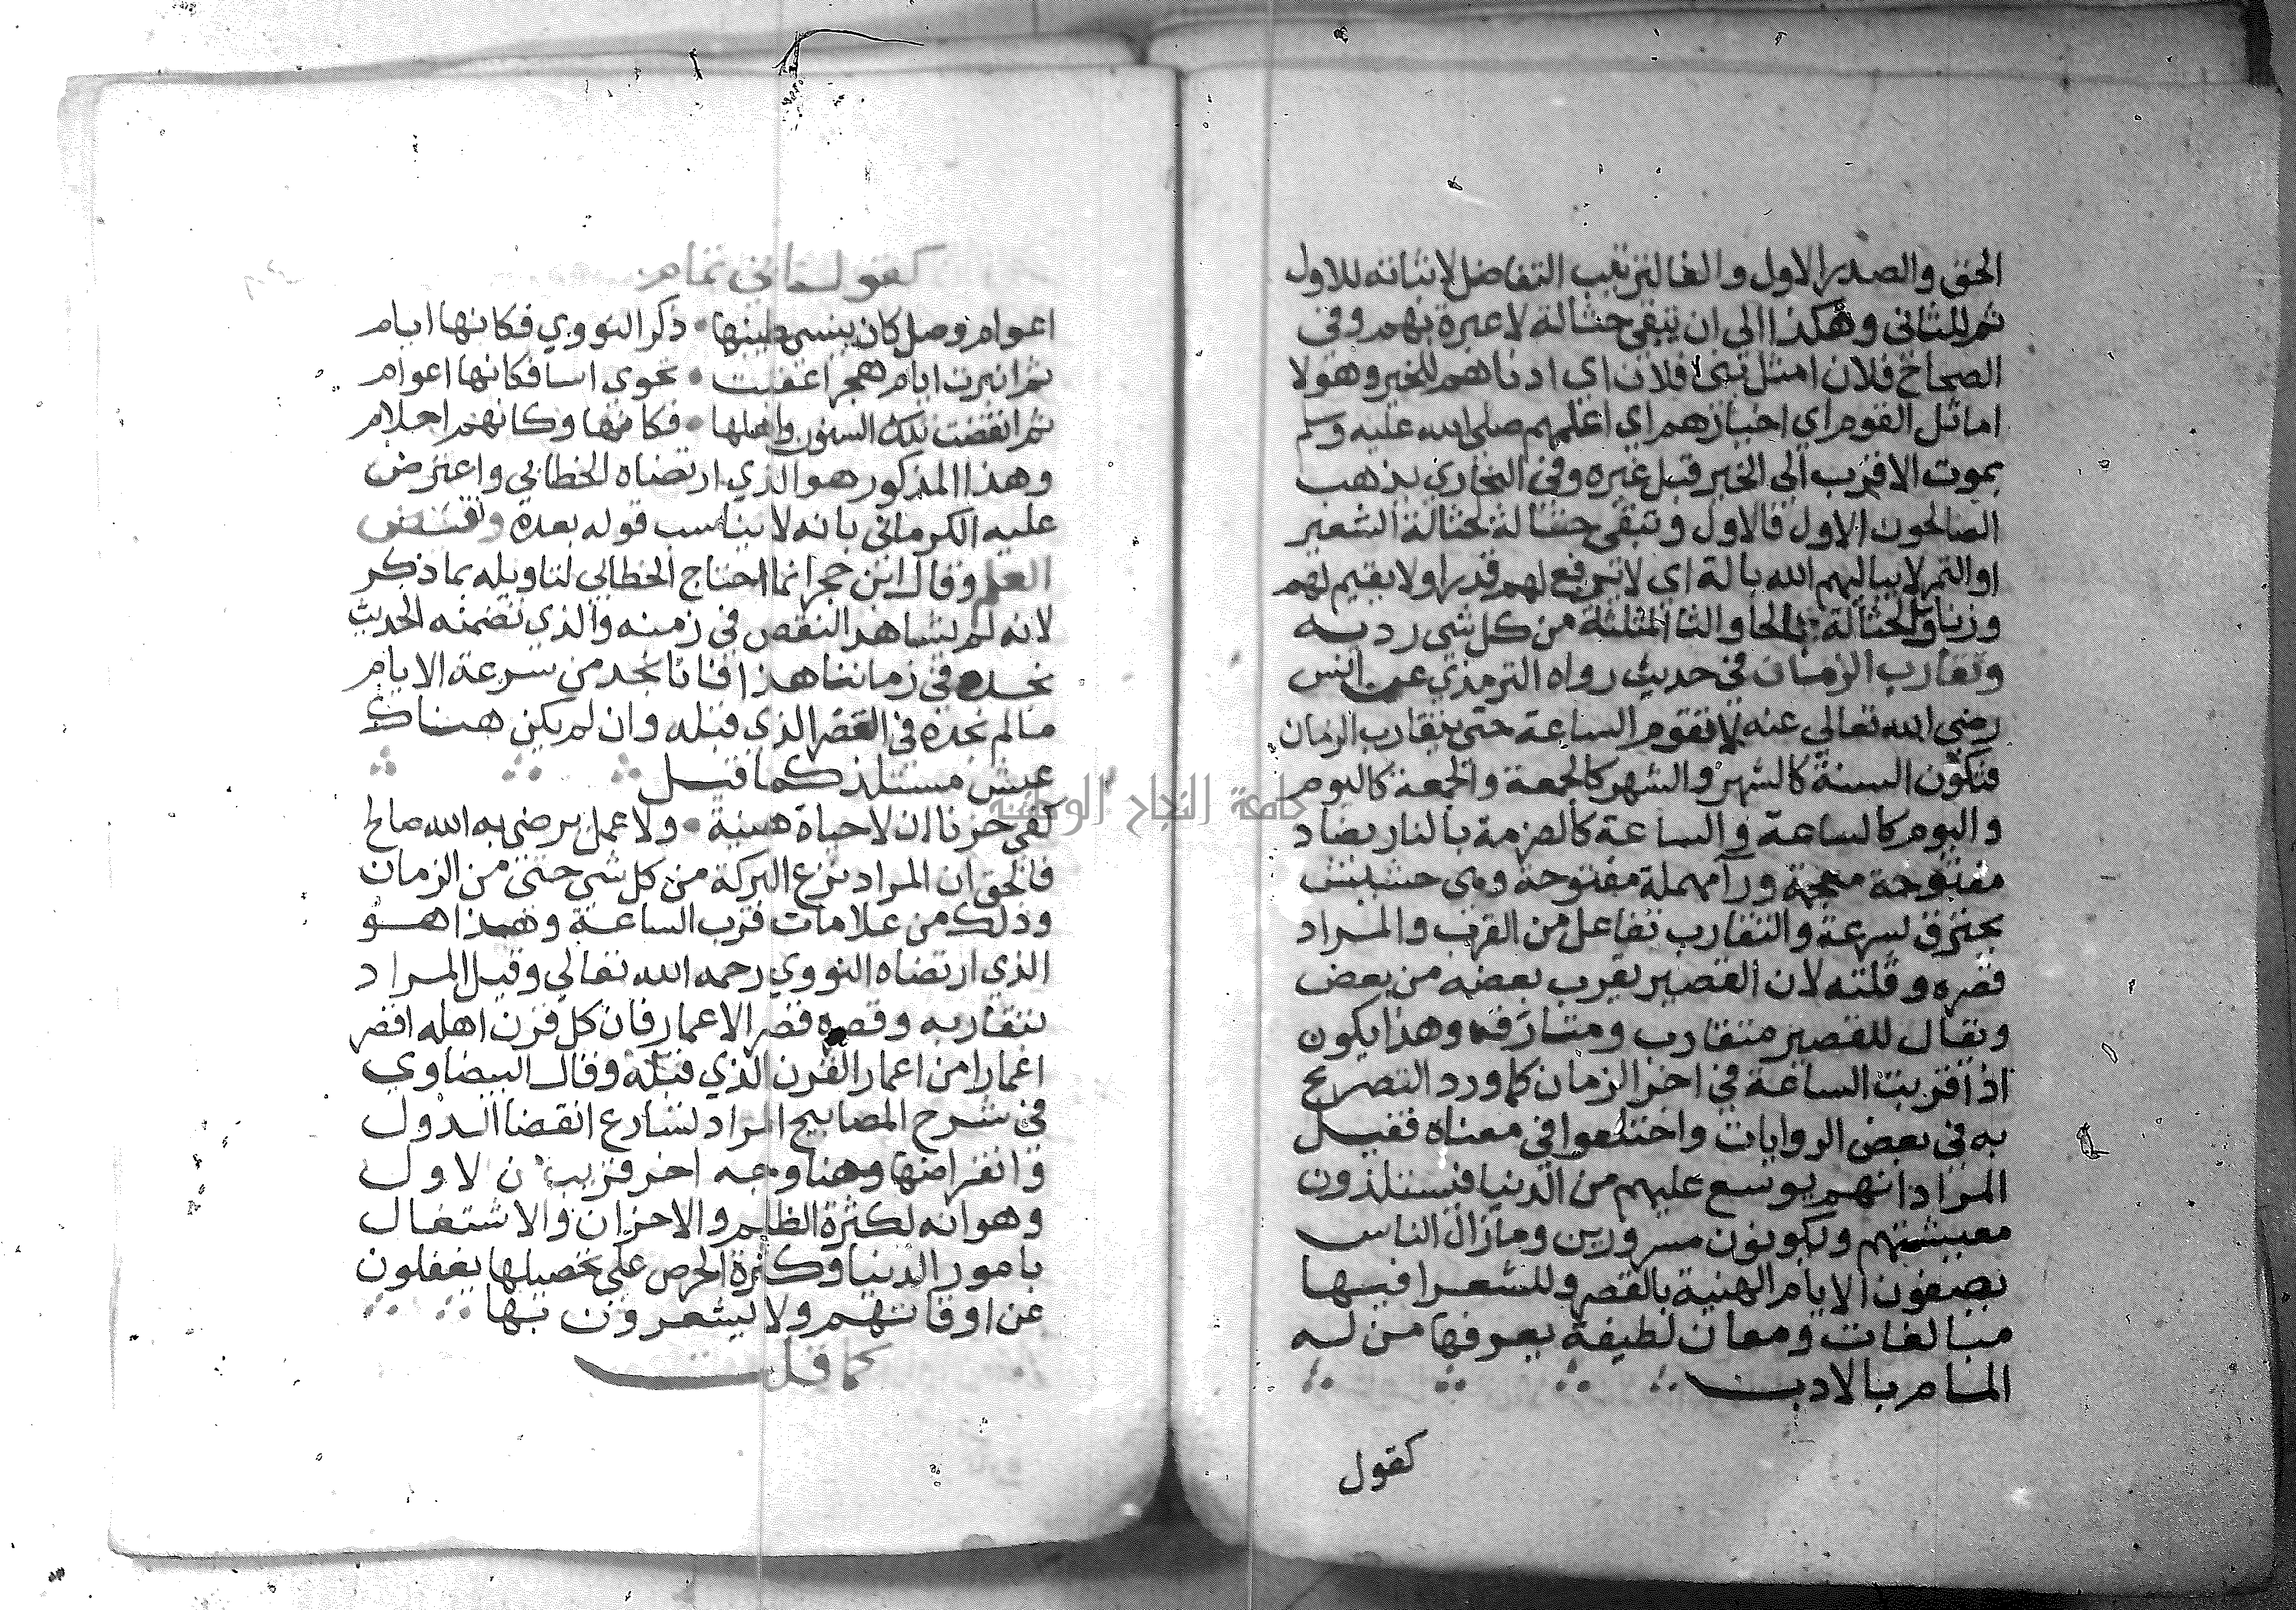 الحق والصدر الاول والفا لترتيب التفاضل لاثباته للاول
ثم للثاني وهكذا الى ان تبقى حثالة لا عبرة بهم وفي
الصحاح فلان امثل بني فلان اي ادناهم للخير وهولا
اماثل القوم اي اخيارهم اي اعلمهم صلى الله عليه وسلم
بموت الاقرب الى الخير قبل غيره وفي البخاري يذهب
الصالحون الاول فالاول وتبقى حثالة كحثالة الشعير
او التمر لا يباليهم الله بالة اي لا يرفع لهم قدرا ولا يقيم لهم
وزنا والحثالة بالحا والثا المثلثة من كل شي رديه
وتقارب الزمان في حديث رواه الترمذي عن انس
رضي الله تعالى عنه لا تقوم الساعة حتى يتقارب الزمان
فتكون السنة كالشهر والشهر كالجمعة والجمعة كاليوم
واليوم كالساعة والساعة كالضرمة بالنار بضاد
مفتوحة معجمة ورا مهملة مفتوحة وهي حشيش
يحترق بسرعة والتقارب تفاعل من القرب والمراد
قصره وقلته لان القصير يقرب بعضه من بعض
ويقال للقصير متقارب ومتازف وهذا يكون
اذا قربت الساعة في اخر الزمان كما ورد التصريح
به في بعض الروايات واختلفوا في معناه فقيل
المراد انهم يوسع عليهم من الدنيا فيستلذون
معيشتهم ويكونون مسرورين ومازال الناس
يصفون الايام الهنية بالقصر وللشعرا فيها
مبالغات ومعان لطيفة يعرفها من له
المام بالادب
كقول
كقول ابي تمام
اعوام وصل كان ينسى طيبها ذكر النوى فكانها ايام
ثم انبرت ايام هجر اعقبت نحوي اسا فكانها اعوام
ثم انقضت تلك السنون واهلها فكانها وكانهم احلام
وهذا المذكور هو الذي ارتضاه الخطابي واعترض
عليه الكرماني بانه لا يناسب قوله بعده وتقبض
العلم وقال ابن حجر انما احتاج الخطابي لتاويله بما ذكر
لانه لم يشاهد النقص في زمنه والذي تضمنه الحديث
نجده في زماننا هذا فانا نجد من سرعة الايام
مالم نجده في العصر الذي قبله وان لم يكن هناك
عيش مستلذ كما قيل
كفى حزنا ان لا حياة هنية ولا عمل يرضى به الله صالح
فالحق ان المراد نزع البركة من كل شي حتى من الزمان
وذلك من علامات قرب الساعة وهذا هو
الذي ارتضاه النووي رحمه الله تعالى وقيل المراد
بتقاربه وقصره قصر الاعمار فان كل قرن اهله اقصر
اعمارا من اعمار القرن الذي قبله وقال البيضاوي
في شرح المصابيح المراد تسارع انقضا الدول
وانقراضها وهنا وجه اخر قريب من لاول
وهو انه لكثرة الظلم والاحزان والاشتغال
بامور الدنيا وكثرة الحرص على تحصيلها يغفلون
عن اوقاتهم ولا يشعرون بها
كما قلت
جامعة النجاح الوطنية